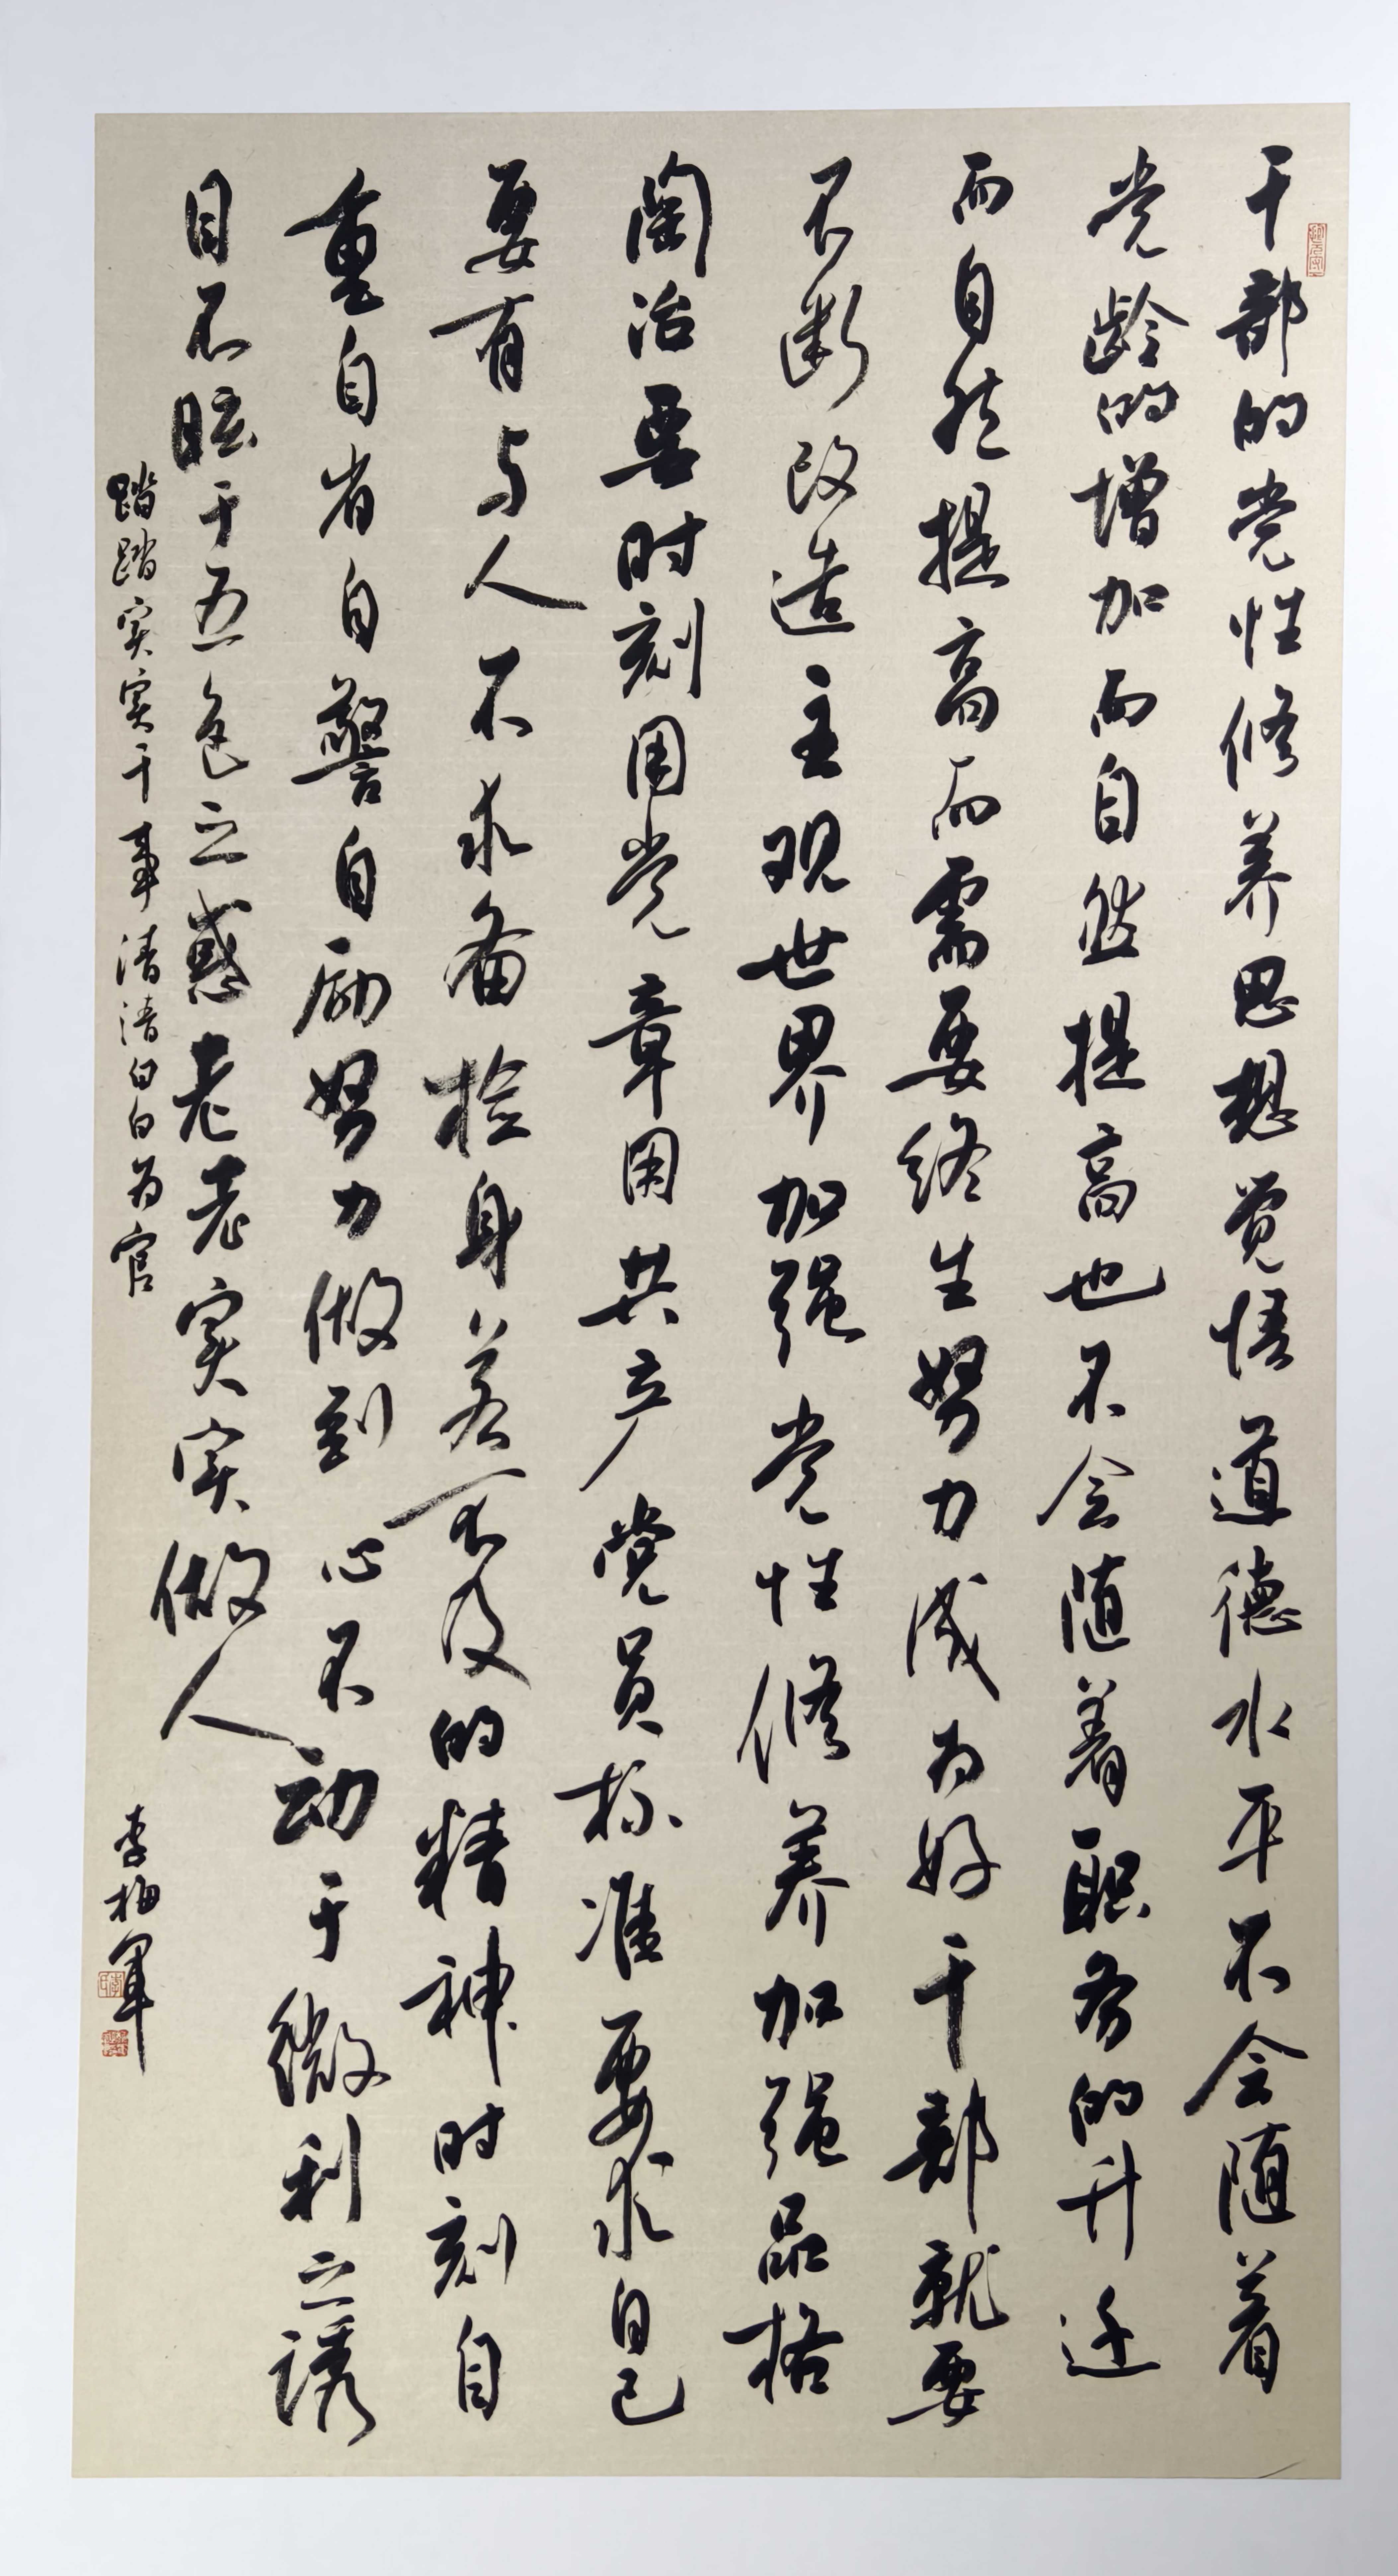 干部的党性修养思想觉悟道德水平不会随着
党龄的增加而自然提高也不会随着职务的升迁
而自然提高而需要终生努力成为好干部就要
不断改造主观世界加强党性修养加强品格
陶冶要时刻用党章用共产党员标准要求自己
要有与人不求备检身若不及的精神时刻自
重自省自警自励努力做到心不动于微利之诱
目不眩于五色之惑老老实实做人
踏踏实实干事清清白白为官
李梅军